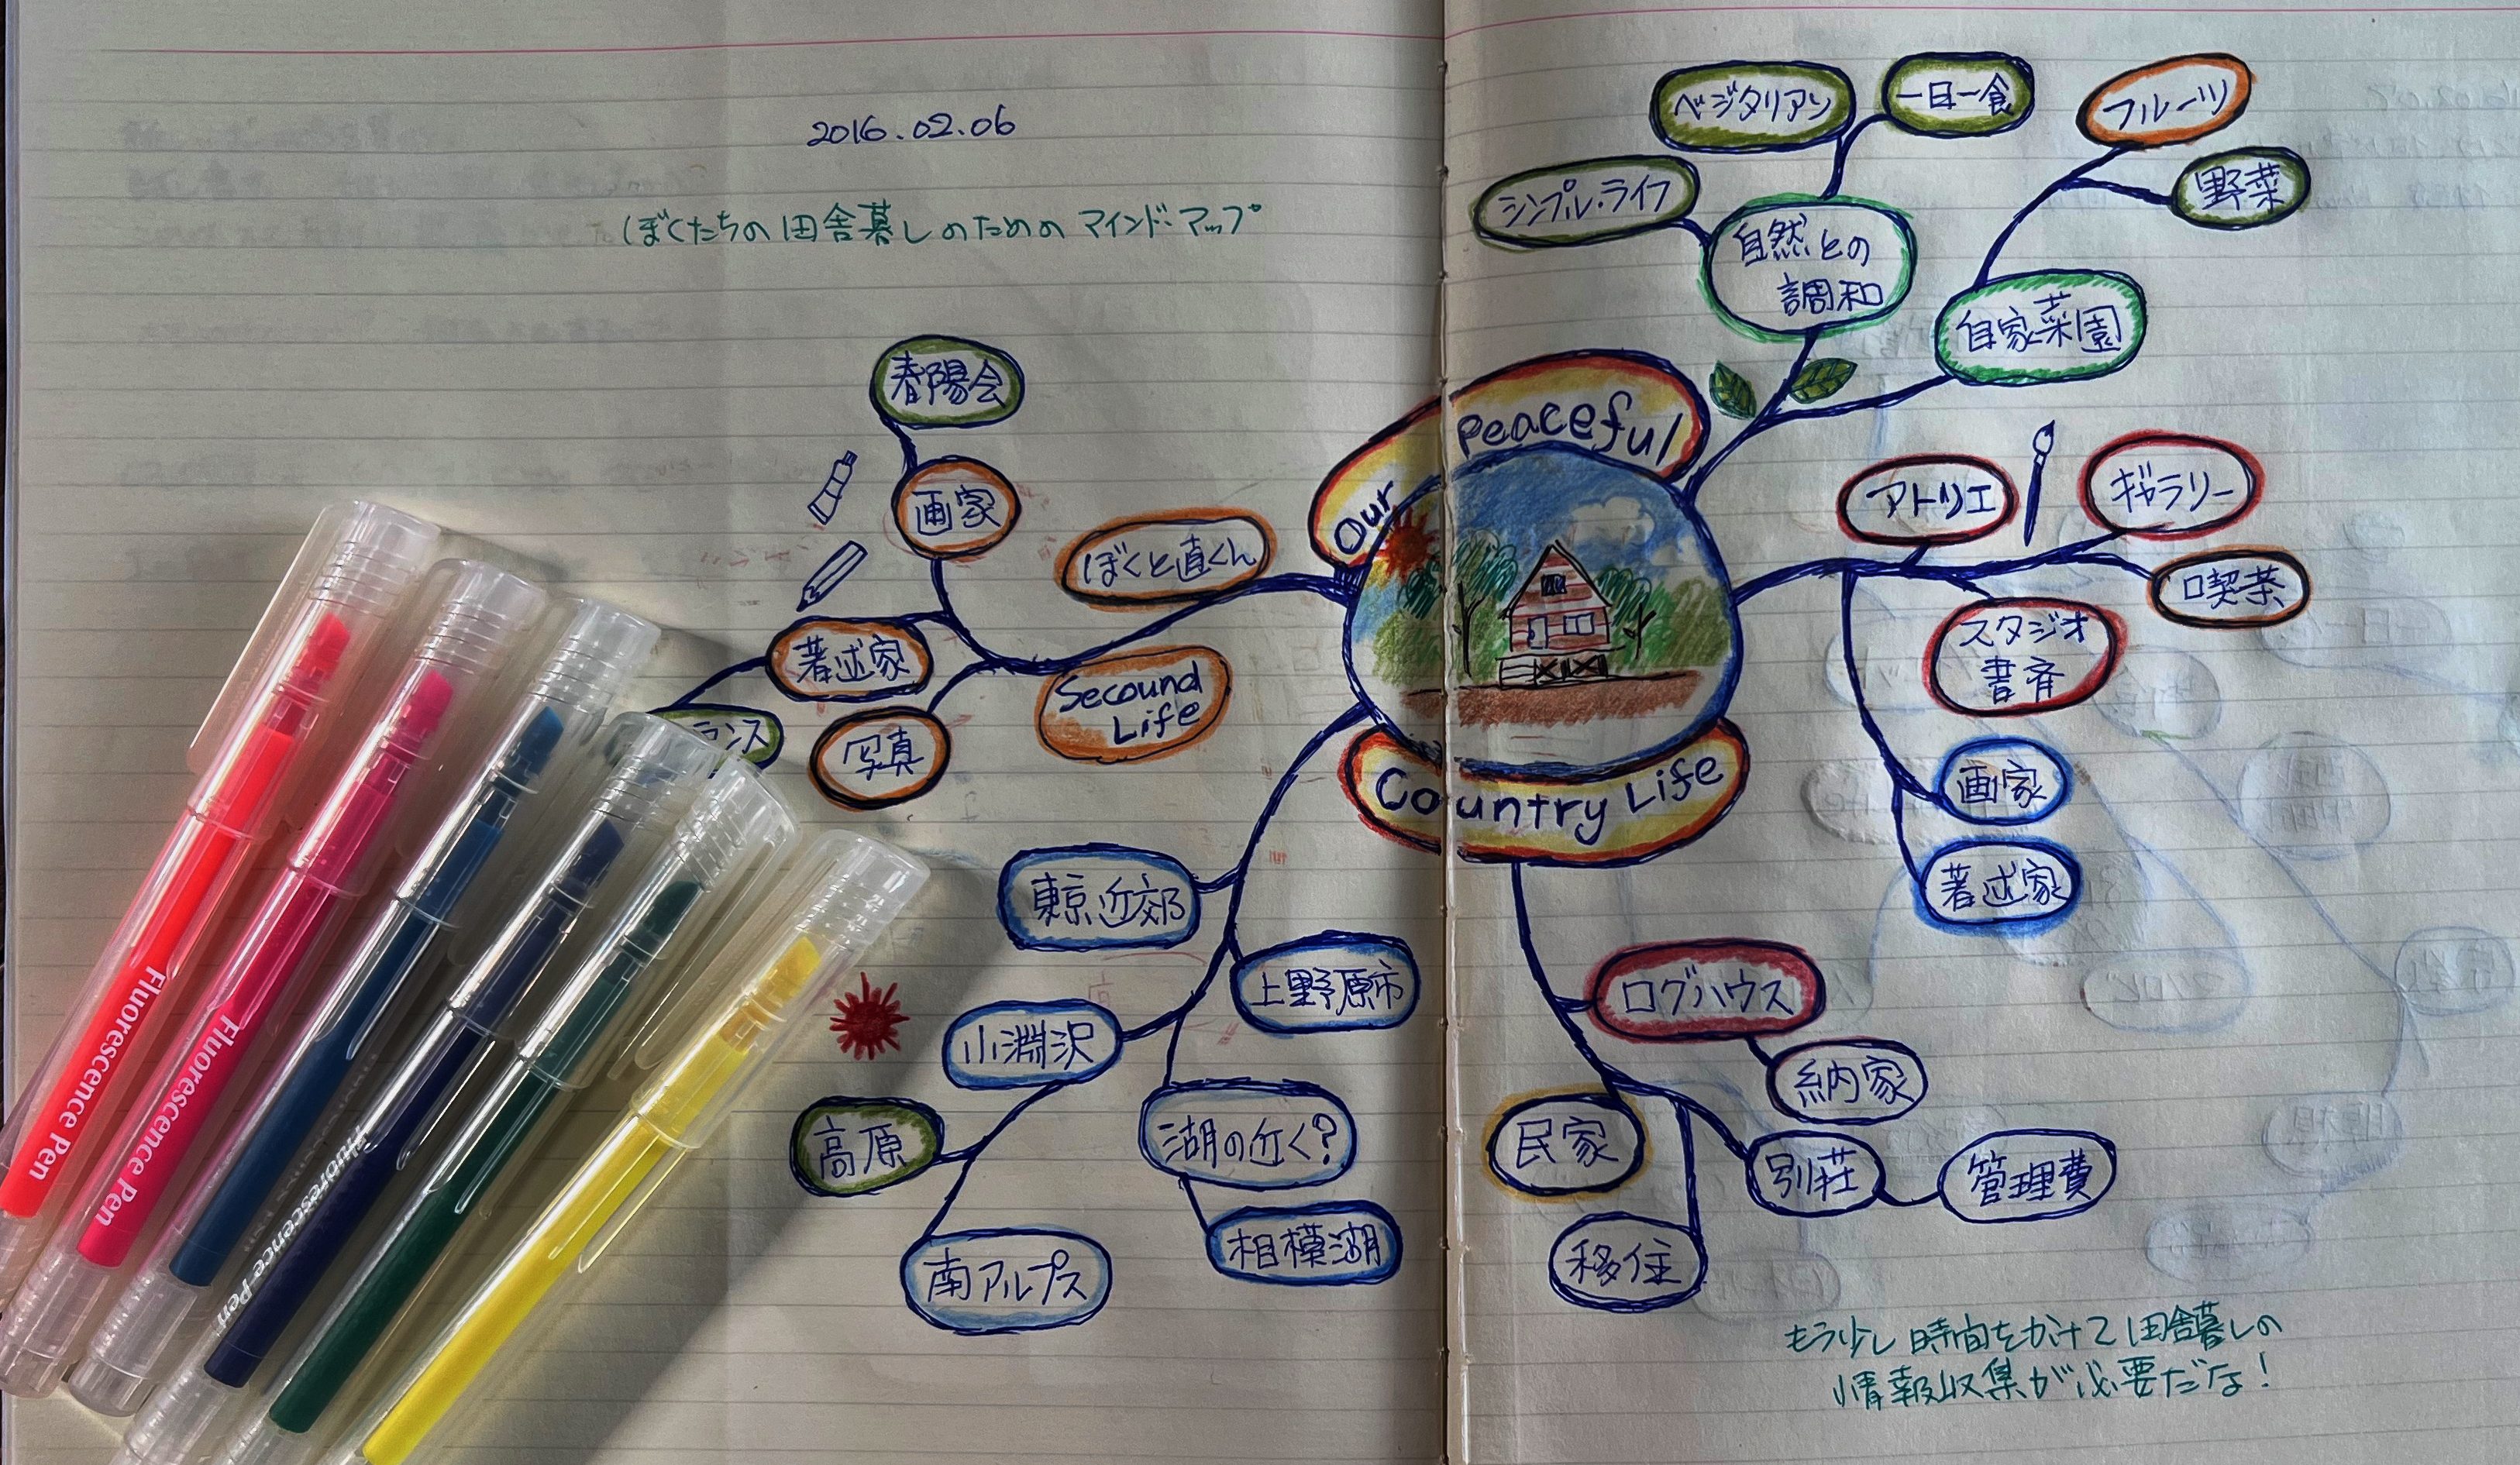 2016.02.06
ぼくたちの田舎暮しのためのマインド・マップ
ベジタリアン
一日一食
フルーツ
シンプル・ライフ
野菜
自然との
調和
自家菜園
春陽会
画家
ぼくと直くん
著述家
Secound
Life
写真
ランス
Our Peaceful
Country Life
アトリエ
ギャラリー
喫茶
スタジオ
書斉
画家
著述家
東京近郊
上野原市
小淵沢
高原
湖の近く?
南アルプス
相模湖
ログハウス
納家
民家
別荘
管理費
移住
もう少し時間をかけて田舎暮しの
情報収集が必要だな!
Fluorescence Pen
Fluorescence Pen
Fluorescence Pen